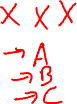 X X X
→ A
→ B
→ C